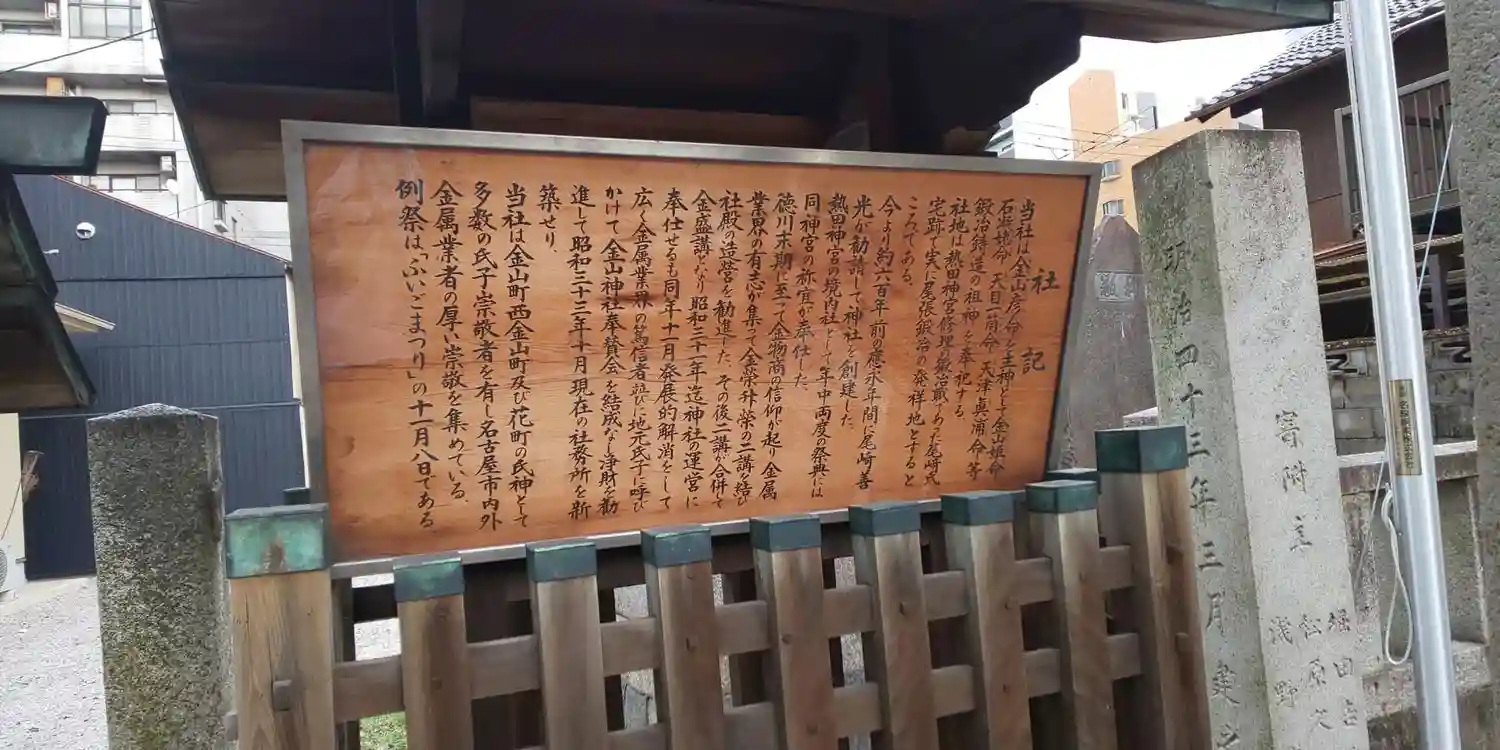 社記
当社は金山彦命を主神として金山姫命
石凝姥命 天目一箇命 天津真浦命等
鍛冶鋳造の祖神を奉祀する。
社地は熱田神宮修理の鍛冶職であった尾崎氏
宅跡で実に尾張鍛冶の発祥地とすると
ころである。
今より約六百年前の應永年間に尾崎善
光が勧請して神社を創建した。
熱田神宮の境内社として年中両度の祭典には
同神宮の祢宜が奉仕した。
徳川末期に至って金物商の信仰が起り金属
業界の有志が集って金榮舛榮の二講を結び
社殿の造営を勧進した その後二講は合併て
金盛講となり昭和三十一年迄神社の運営に
奉仕せるも同年十一月発展的解消をして
広く金属業界の篤信者竝びに地元氏子に呼び
かけて金山神社奉賛会を結成なし浄財を勧
進して昭和三十三年十月現在の社務所を新
築せり。
当社は金山町西金山町及び花町の氏神として
多数の氏子崇敬者を有し名古屋市内外
金属業者の厚い崇敬を集めている。
例祭は「ふいごまつり」の十一月八日である
明治四十三年三月建之
寄附主
堀田吉
松原
浅野